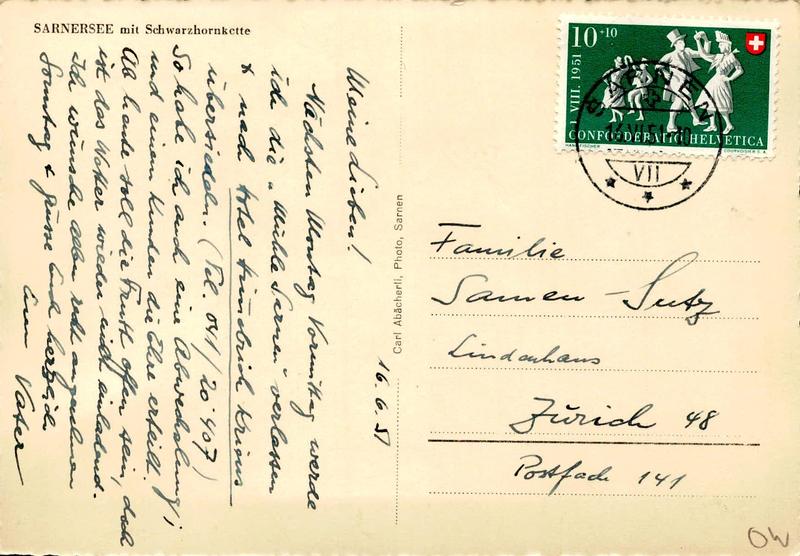 SARNERSEE mit Schwarzhornkette
Meine Lieben!
Nächsten Montag Vormittag werde
ich die "Mühle Sarnen" verlassen
& nach Hotel Himmelreich Kriens
übersiedeln. (Tel. 041/20407)
So habe ich auch eine Abwechslung,
und einem Kunden die Ehre erteilt.
Ab heute soll die Frutt offen sein, doch
ist das Wetter wieder nicht einladend.
Ich wünsche allen recht angenehmen
Sonntag & grüsse Euch herzlich
Euer Vater
16.6.51
Carl Abächerli, Photo, Sarnen
10+10
1. VIII. 1951
CONFOEDERATIO HELVETICA
HANS FISCHER
COURVOISIER S.A.
SARNEN
VI.51
VII
Familie
Samen-Sutz
Lindenhaus
Zürich 48
Postfach 141
OW